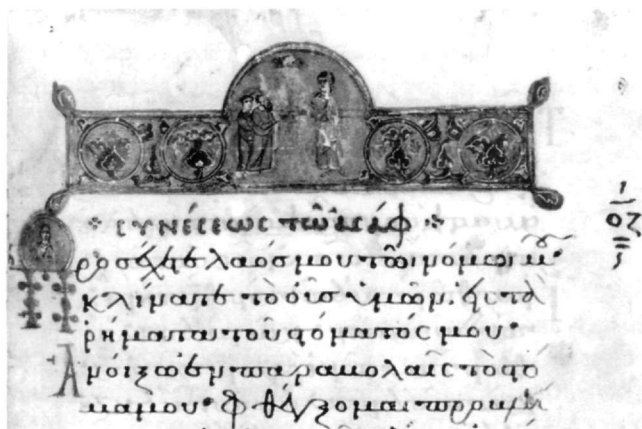 συνέσεως τῶ ἀσάφ
Προσέχετε λαός μου τῶι νόμωι μου·
κλίνατε τὸ οὖς ὑμῶν εἰς τὰ
ῥήματα τοῦ στόματός μου·
Ἀνοίξω ἐν παραβολαῖς τὸ στό
μα μου· φθέγξομαι
ΟΖ